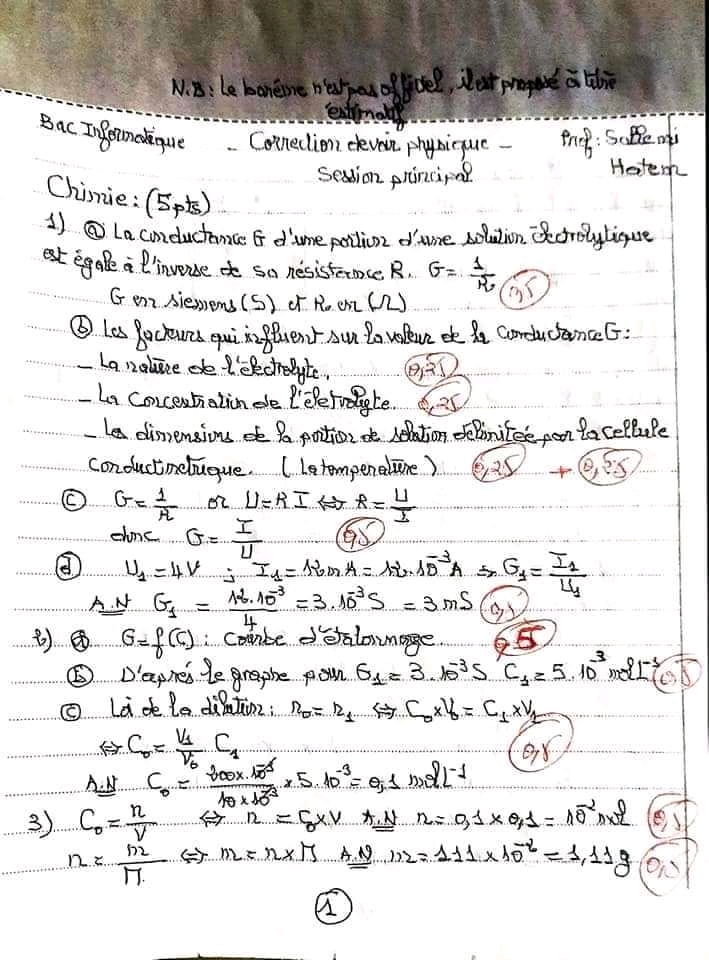 N.B: Le barème n'est pas officiel, il est proposé à titre
estimatif
Bac Informatique - Correction devoir physique - Prof: Sallemi
Session principal Hatem
Chimie: (5pts)
1) (a) La conductance G d'une portion d'une solution électrolytique
est égale à l'inverse de sa résistance R. G = 1/R
G en siemens (S) et R en (Ω)
(b) Les facteurs qui influent sur la valeur de la conductance G:
- La nature de l'électrolyte. 0,25
- La Concentration de l'életrolyte. 0,25
- Les dimensions de la portion de solution délimitée par la cellule
conductimétrique. (La température) 0,25 + 0,25
(c) G = 1/R or U = R I ⇔ R = U/I
donc G = I/U 0,5
(d) U₁ = 4V ; I₁ = 12 mA = 12.10⁻³ A ⇒ G₁ = I₁/U₁
A.N G₁ = 12.10⁻³/4 = 3.10⁻³ S = 3 mS 0,5
(a) G = f(C) : Courbe d'étalonnage.
(b) D'aprés le graphe pour G₁ = 3.10⁻³ S C₁ = 5.10⁻³ mol L⁻¹ 0,5
(c) Loi de la dilution: n₀ = n₁ ⇔ C₀ x V₀ = C₁ x V₁
⇔ C₀ = V₁/V₀ C₁ 0,5
A.N C₀ = x 5.10⁻³ = 0,1 mol L⁻¹
3) C₀ = n/V ⇔ n = C₀ x V A.N n = 0,1 x 0,1 = 10⁻² mol 0,5
n = m/M ⇔ m = n x M A.N m = 111 x 10⁻² = 1,11g 0,5
1